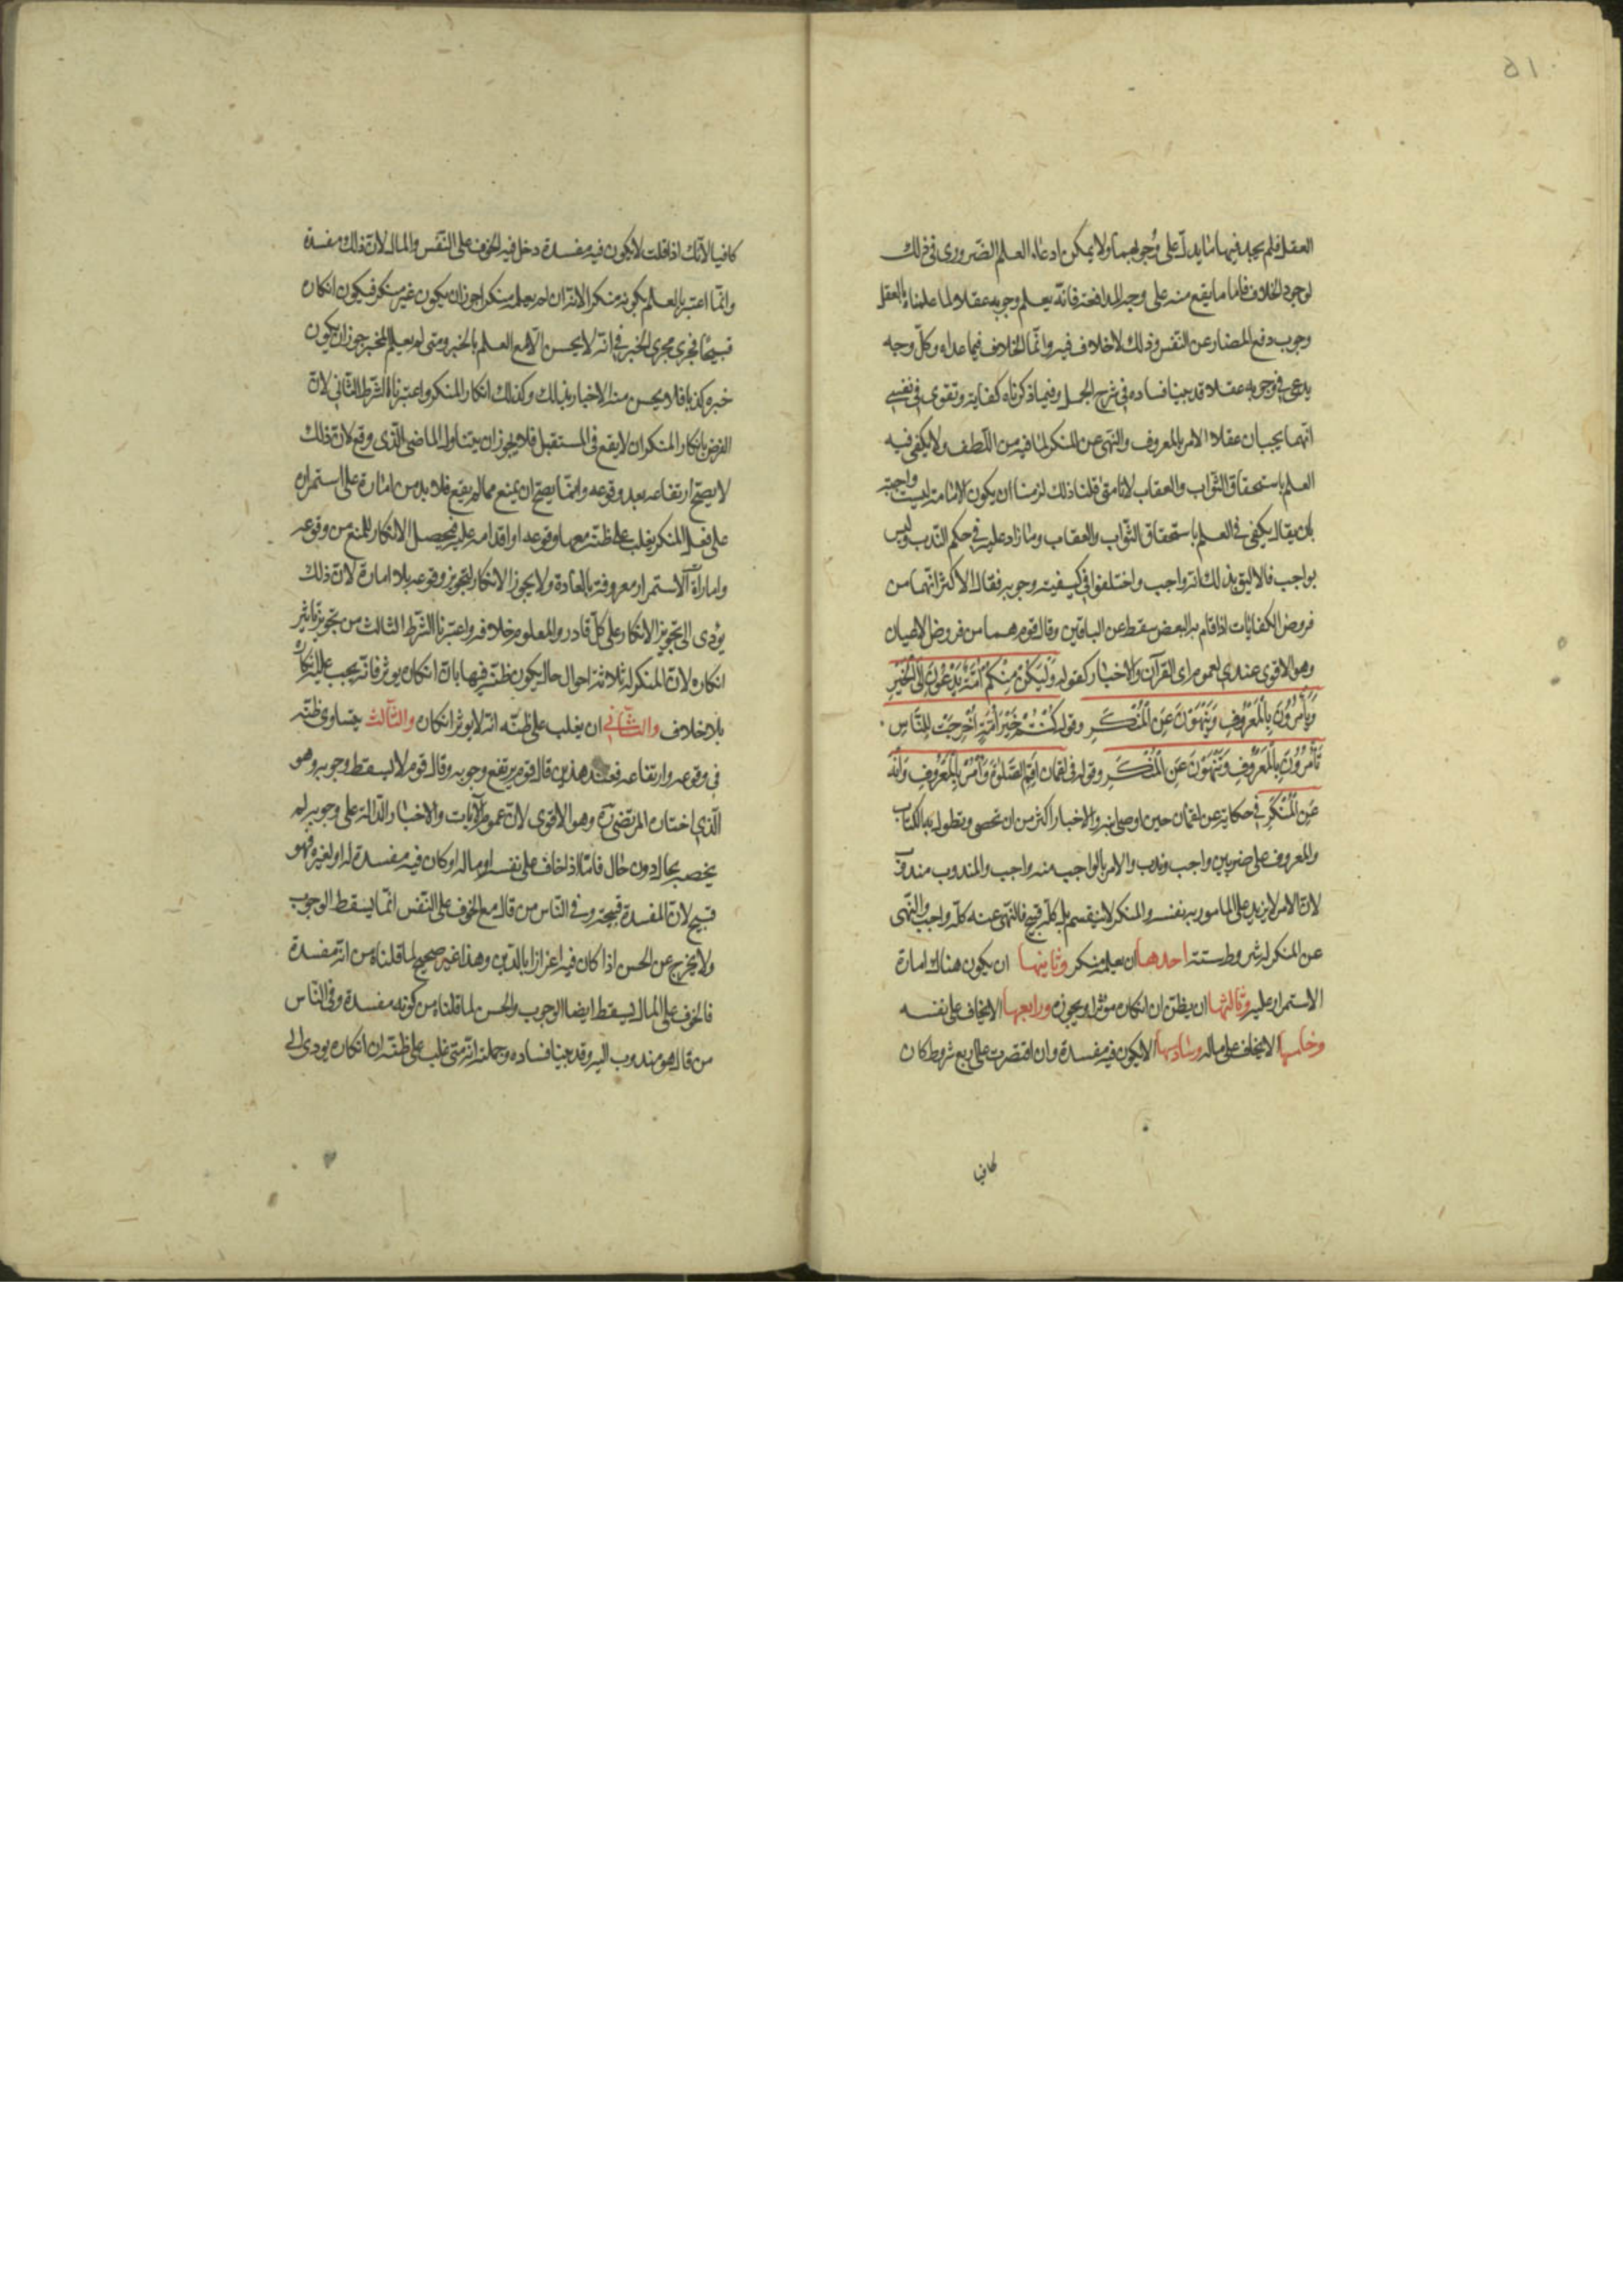 ٥١
العقل فلم يجد فيها ما يدلّ على وجوبهما ولا يمكن ادعاء العلم الضّروري في ذلك
لوجود الخلاف فامّا ما يقع منه على وجه المدافعة فانّه يعلم وجوبه عقلا لما علمناه بالعقل
وجوب دفع المضار عن النّفس وذلك لاخلاف فيه وانّما الخلاف فيما عداه وكلّ وجه
يدعى في وجوبه عقلا قد بينا فساده في شرح الجمل وفيما ذكرناه كفاية وتقوى في نفسي
انّهما يجبان عقلا الامر بالمعروف والنّهي عن المنكر لما فيه من اللّطف ولا يكفي فيه
العلم باستحقاق الثّواب والعقاب لانا متى قلنا ذلك لزمنا ان يكون الامامة ليست واجبة
بان يقال يكفي في العلم باستحقاق الثّواب والعقاب وما زاد عليه في حكم النّدب وليس
بواجب فالاليق بذلك انّه واجب واختلفوا في كيفية وجوبه فقال الاكثر انّهما من
فروض الكفايات اذا قام به البعض سقط عن الباقين وقال قوم هما من فروض الاعيان
وهو الاقوى عندي لعموم اي القرآن والاخبار كقوله وَلْيَكُنْ مِنْكُمْ أُمَّةٌ يَدْعُونَ إِلَى الْخَيْرِ
وَيَأْمُرُونَ بِالْمَعْرُوفِ وَيَنْهَوْنَ عَنِ الْمُنْكَرِ وقوله كُنْتُمْ خَيْرَ أُمَّةٍ أُخْرِجَتْ لِلنَّاسِ
تَأْمُرُونَ بِالْمَعْرُوفِ وَتَنْهَوْنَ عَنِ الْمُنْكَرِ وقوله في لقمان اَقِمِ الصَّلوةَ وَأْمُرْ بِالْمَعْرُوفِ وَانْهَ
عَنِ الْمُنْكَرِ في حكاية عن لقمان حين اوصى ابنه والاخبار اكثر من ان تحصى ويطول به الكتاب
والمعروف على ضربين واجب وندب والامر بالواجب منه واجب والمندوب مندوب
لانّ الامر لا يزيد على المامور به نفسه والمنكر لا ينقسم بل كلّه قبيح فالنّهي عنه كلّه واجب والنّهي
عن المنكر له شروط ستة احدها ان يعلمه منكر وثانيها ان يكون هناك امارة
الاستمرار عليه وثالثها ان يظنّ ان انكاره مؤثّر او يجوزه ورابعها الا يخاف على نفسه
وخامسها الا يخاف على ماله وسادسها الا يكون فيه مفسدة وان اقتصرت على اربع شروط كان
كافيا
كافيا لانّك اذا قلت لا يكون فيه مفسدة دخل فيه الخوف على النّفس والمال لانّ ذلك مفسدة
وانّما اعتبرنا العلم بكونه منكرا لانّه ان لم يعلمه منكرا جوز ان يكون غير منكر فيكون انكاره
قبيحا فجرى مجرى الخبر في انّه لا يحسن الّا مع العلم بالخبر ومتى لم يعلم المخبر جوز ان يكون
خبره كذبا فلا يحسن منه الاخبار بذلك وكذلك انكار المنكر واعتبرنا الشّرط الثّاني لانّ
الغرض بانكار المنكر ان لا يقع في المستقبل فلا يجوز ان يتناول الماضي الّذي وقع لانّ ذلك
لا يصحّ ارتفاعه بعد وقوعه وانّما يصحّ ان يمنع ممّا لم يقع فلا بد من امارة على استمراره
على فعل المنكر يغلب على ظنّه معها وقوعه او اقدامه عليه فيحصل الانكار للمنع من وقوعه
وامارة الاستمرار معروفة بالعادة ولا يجوز الانكار لتجويز وقوعه بلا امارة لانّ ذلك
يؤدى الى تجويز الانكار على كلّ قادر والمعلوم خلافه واعتبرنا الشّرط الثالث من تجويز تاثير
انكاره لانّ المنكر له ثلاثة احوال حال يكون ظنّه فيها بانّ انكاره يوثر فانّه يجب عليه انكاره
بلا خلاف والثّاني ان يغلب على ظنّه انّه لا يوثر انكاره والثّالث يتساوى ظنّه
في وقوعه وارتفاعه فعند هذين قال قوم يرتفع وجوبه وقال قوم لا يسقط وجوبه وهو
الّذي اختاره المرتضى ره وهو الاقوى لانّ عموم الآيات والاخبار الدّالة على وجوبه لم
يخصه بحال دون حال فامّا اذا خاف على نفسه او ماله او كان فيه مفسدة له او لغيره فهو
قبيح لانّ المفسدة قبيحة وفي النّاس من قال مع الخوف على النّفس انّما يسقط الوجوب
ولا يخرج عن الحسن اذا كان فيه اعزازا بالدّين وهذا غير صحيح لما قلناه من انّه مفسدة
فالخوف على المال يسقط ايضا الوجوب والحسن لما قلناه من كونه مفسدة وفي النّاس
من قال هو مندوب اليه وقد بينا فساده وجملته انّه متى غلب على ظنّه ان انكاره يودي الى